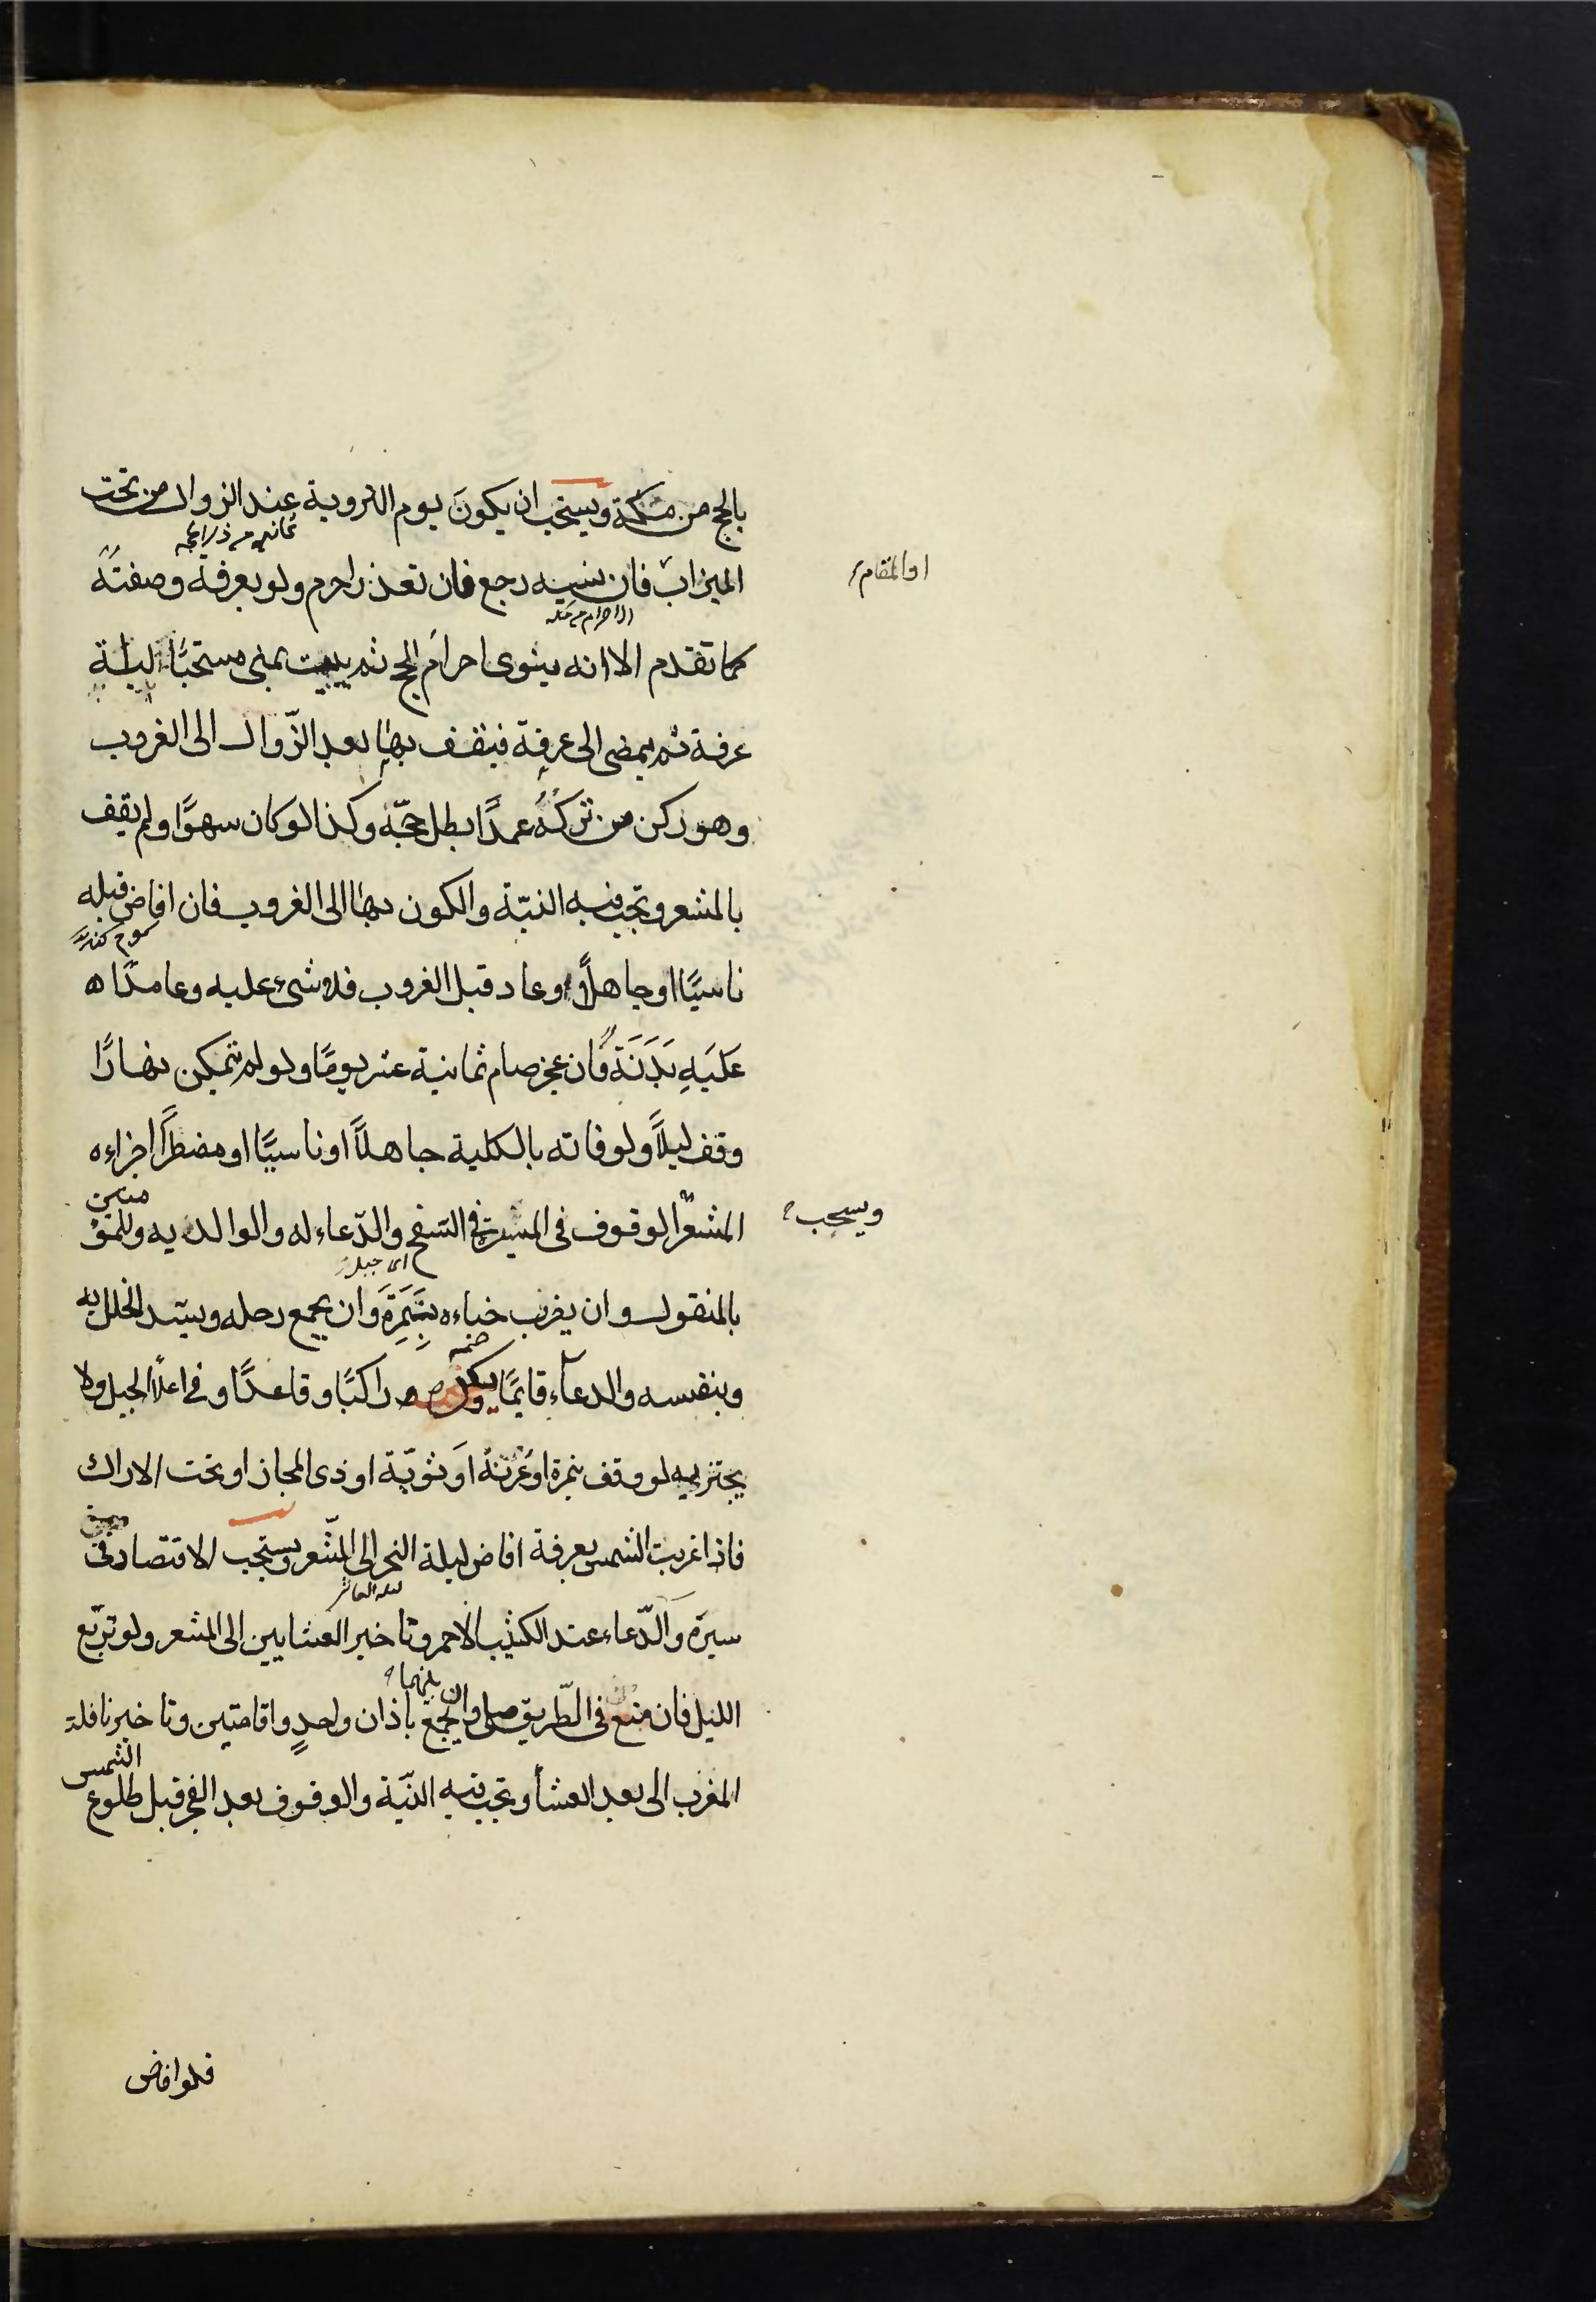 بالحج من مكة ويستحب ان يكونَ يوم التروية عند الزوال من تحت
الميزاب فان نسيه رجع فان تعذر احرم ولو بعرفة وصفتهُ
او المقام
كما تقدم الا انه ينوى احرامَ الحج ثم يبيت بمنى مستحبًّا ليلة
عرفة ثم يمضى الى عرفة فيقف بها بعد الزّوال الى الغروب
وهو ركن من تركهُ عمدًا بطل حجّه وكذا لو كان سهوًا ولم يقف
بالمشعر وتجب فيه النيّة والكون بها الى الغروب فان افاض قبله
ناسيًا او جاهلًا وعاد قبل الغروب فلا شىء عليه وعامدًا
عَلَيهِ بَدَنَة فان عجز صام ثمانية عشر يومًا ولو لم يتمكن نهارًا
وقف ليلًا ولو فاته بالكلية جاهلًا او ناسيًا او مضطرًا اجزاءه
المشعر الوقوف فى الميسرة فى السفح والدّعاء له ولوالديه وللمؤ
منين
ويستحب
اى جبل
بالمنقول وان يضرب خباءه بِنَمِرَةَ وان يجمع رحله ويسد الخلل به
وبنفسه والدعاء قايمًا ويكره راكبًا وقاعدًا وفى اعلا الجبل ولا
يجتزيه لو وقف بنمرة او عُرَنةَ او ثويّة او ذى المجاز او تحت الاراك
فاذا غربت الشمس بعرفة افاض ليلة النحر الى المشعر ويستحب الاقتصاد فى
سيرة والدّعاء عند الكثيب الاحمر وتاخير العشايين الى المشعر ولو تربّع
الليل فان منع فى الطّريق صلى وان يجمع بينهما باذان واحدٍ واقامتين وتاخير نافلة
المغرب الى بعد العشأ وتجب فيه النيّة والوقوف بعد الفجر قبل طلوع
الشمس
فلو افاض